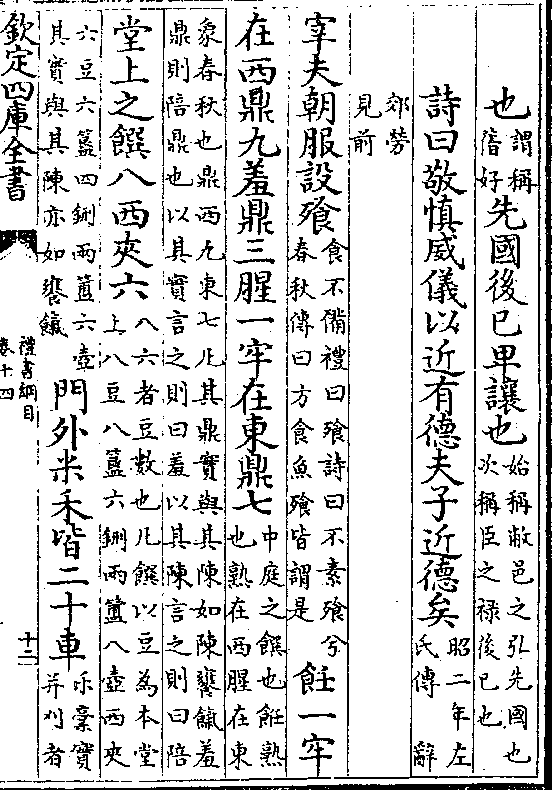 也謂稱皆好先國後己卑讓也始稱敝邑之弘先國也次稱臣之祿後己也
詩曰敬慎威儀以近有德夫子近德矣昭二年左氏傳 辭
郊勞見前
宰夫朝服設飧食不備禮曰飧詩曰不素飧兮春秋傳曰方食魚飧皆謂是飪一牢
在西鼎九羞鼎三腥一牢在東鼎七中庭之饌也飪熟也熟在西腥在東
象春秋也鼎西九東七凡其鼎實與其陳如陳饔餼羞鼎則陪鼎也以其實言之則曰羞以其陳言之則曰陪
堂上之饌八西夾六八六者豆數也凡饌以豆為本堂上八豆八簋六鉶兩簠八壺西夾
六豆六簋四鉶兩簠六壺其實與其陳亦如饔餼門外米禾皆二十車禾稾實并刈者
欽定四庫全書
禮書綱目
卷十四
十二